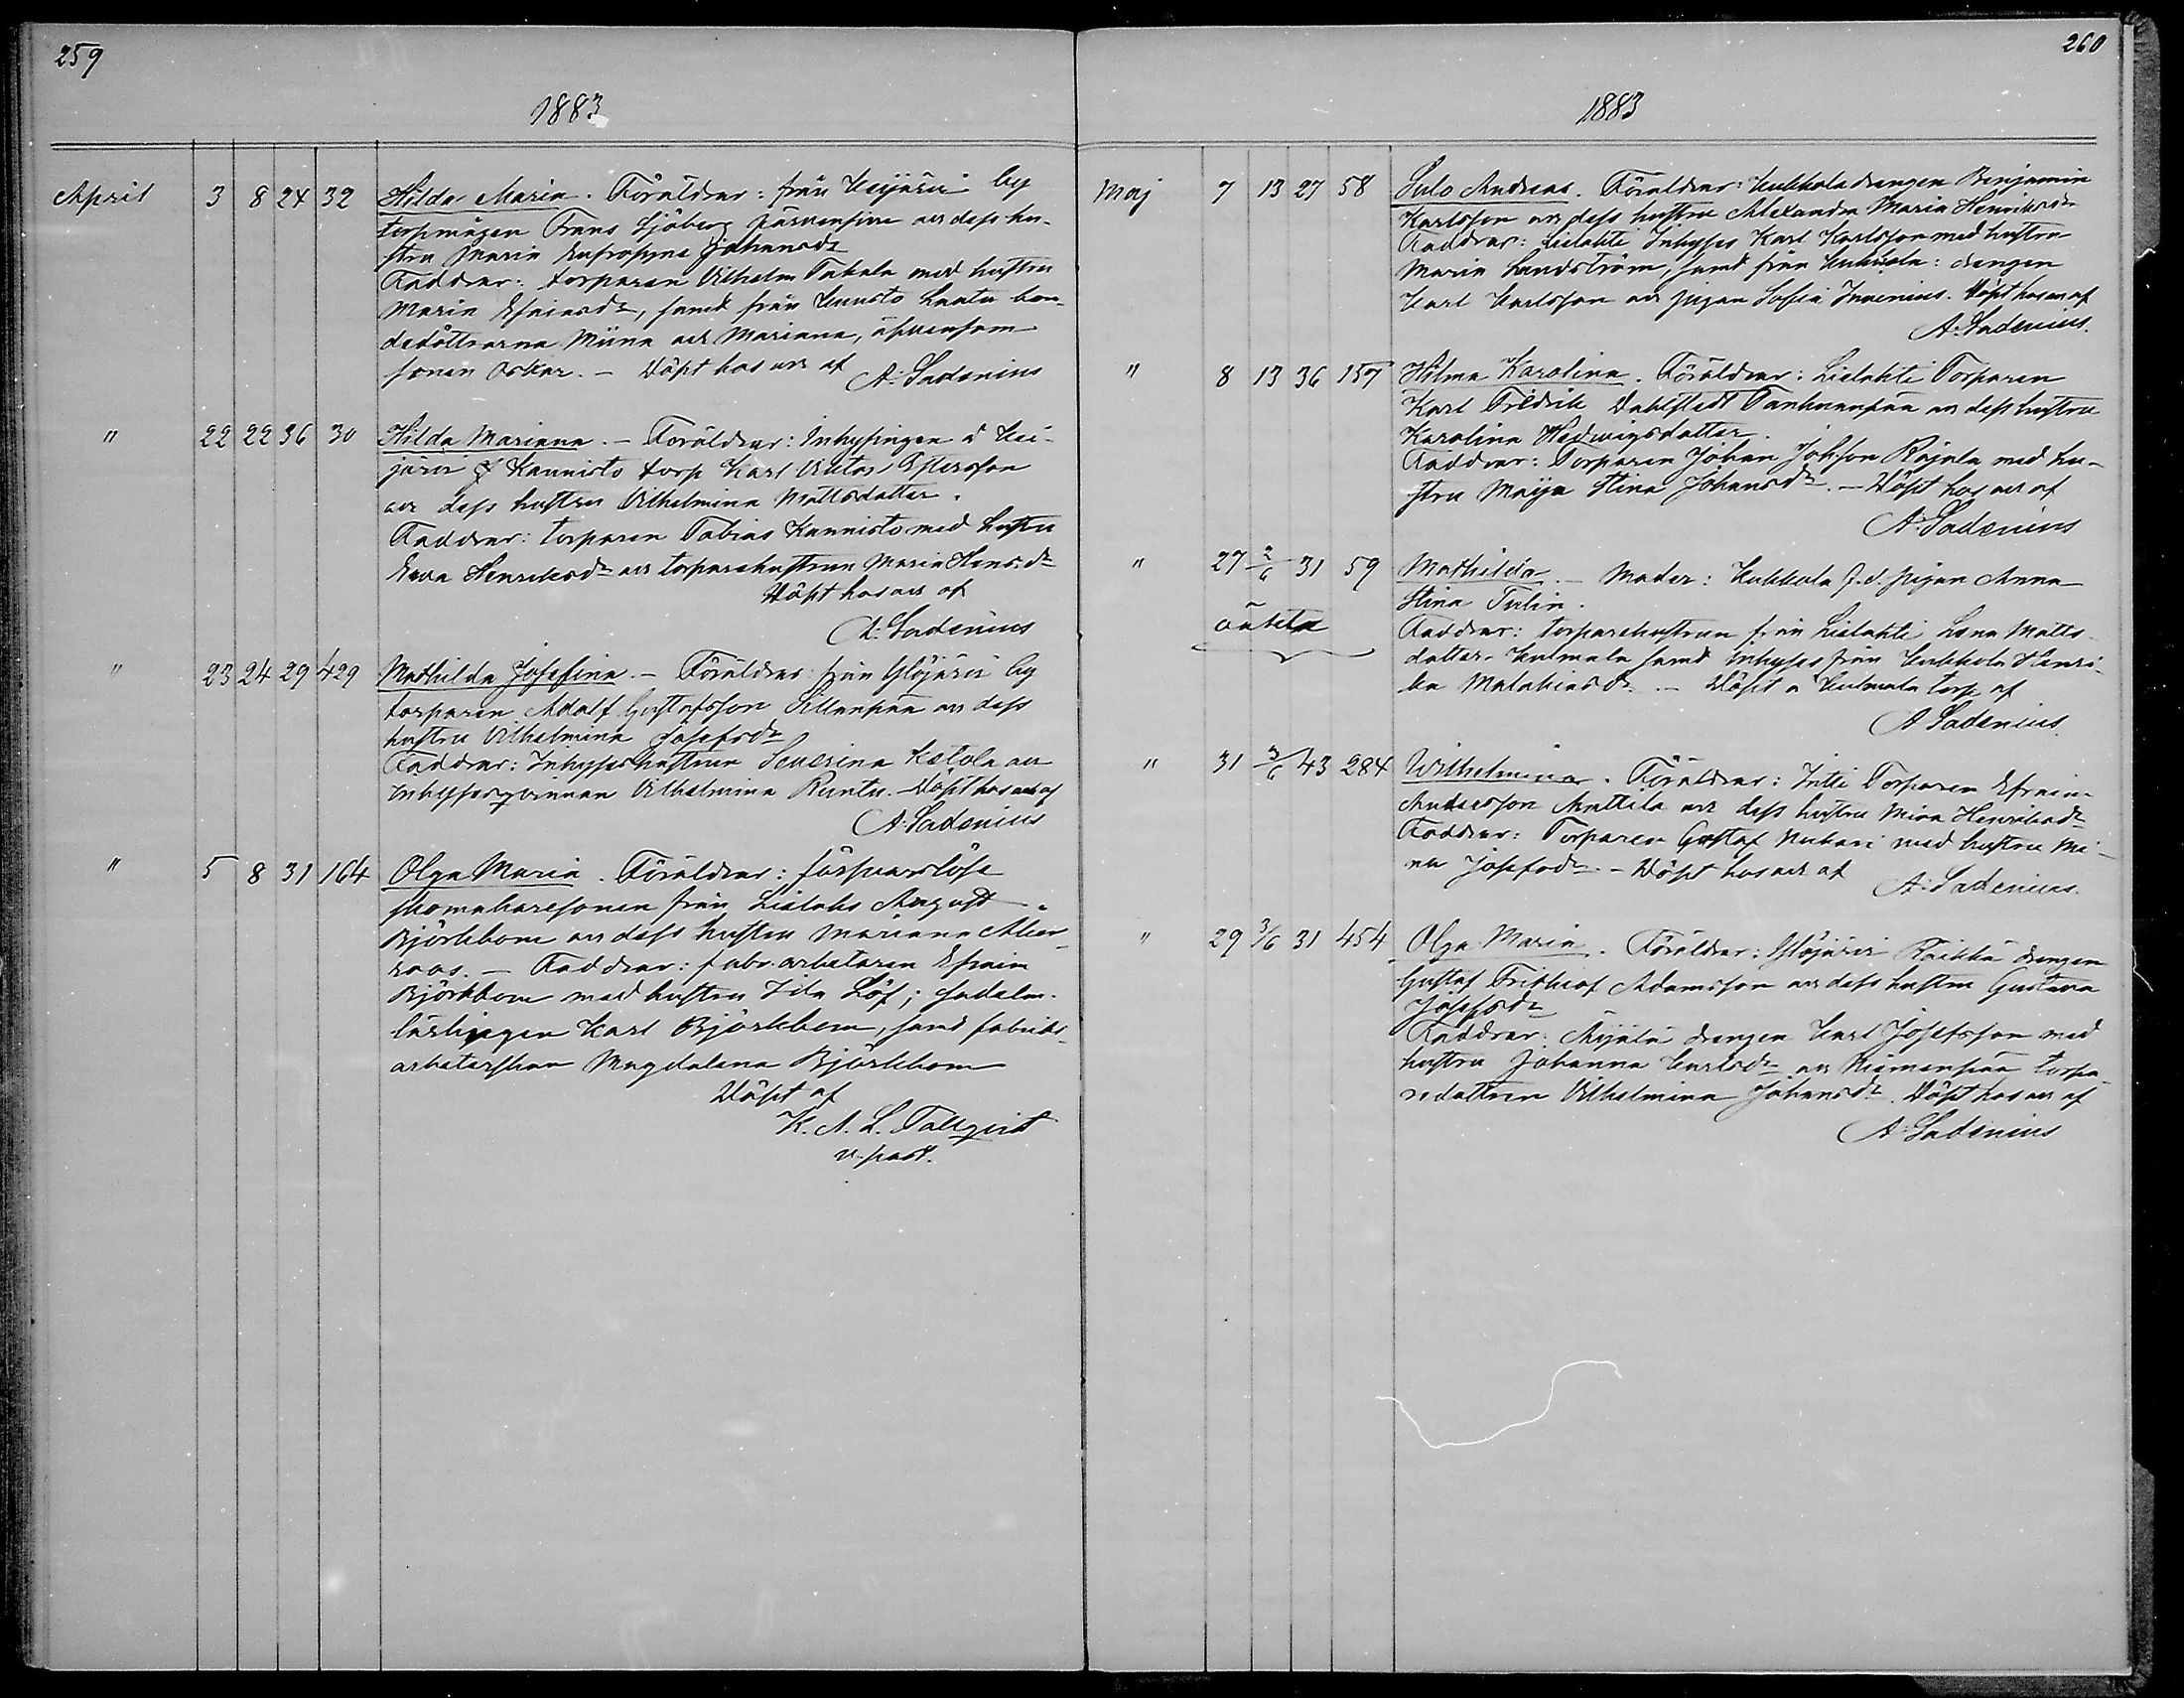 259
1883
April 3 8 24 32 Hilda Maria. Föräldrar: från Keijärvi by
torpmågen Frans Sjöberg Järvensivu och dess hu-
stru Maria Eufrosyne Johansdr
Faddrar: torparen Vilhelm Takala med hustru
Maria Esaiasdr, samt från Kunnisto Lauta bon-
dedöttrarna Miina och Mariana, äfvensom
sonen Oskar. - Döpt hos och af A. Ladenius
" 22 22 36 30 Hilda Mariana. - Föräldrar: Inhysingen å Kei-
järvi Kannisto torp Karl Viktor
och dess hustru Vilhelmina Mattsdotter.
Faddrar: torparen Tobias Kannisto med hustru
Eva Henriksdr och torparehustrun Maria Hensdr
Döpt hos och af
A. Ladenius
" 23 24 29 429 Mathilda Josefina. - Föräldrar från Ylöjärvi by
torparen Adolf Gustafsson Sillanpää och dess
hustru Vilhelmina Josefsdr
Faddrar: Inhyseshustrun Severina Ketola och
inhysesqvinnan Vilhelmina Runtu. Döpt hos och af
A. Ladenius
" 5 8 31 164 Olga Maria. Föräldrar: försvarslöse
skomakaresonen från Lielaks August
Björkbom och dess hustru Mariana
- Faddrar: fabr. arbetaren Efraim
Björkbom med hustru Ida Löf; sadelm.
lärlingen Karl Björkbom, samt fabriks-
arbeterskan Magdalena Björkbom
Döpt af
K. A. L. Tallqvist
v. past.
260
1883
Maj 7 13 27 58 Sulo Andreas. Föräldrar: Kukkola drengen Benjamin
Karlsson och dess hustru Alexandra Maria Henriksdr
Faddrar: Lielahti Inhyses Karl Karlsson med hustru
Maria Lundström, samt från Kukkola: drengen
Karl Karlsson och pigan Sofia Invenius. Döpt hos och af
A. Ladenius.
" 8 13 36 157 Hilma Karolina. Föräldrar: Lielahti Torparen
Karl Fredrik Dahlstedt Tanhuanpää och dess hustru
Karolina Hedvigsdotter.
Faddrar: Torparen Johan Johsson Rajala med hu-
stru Maija Stina Johansdr. - Döpt hos och af
A. Ladenius
" 27 2/6 31 59 Mathilda. - Moder: Kukkola f.d. pigan Anna
Stina Tulin.
oäkta
Faddrar: torparehustrun från Lielahti Lena Matts-
dotter Kulmala samt Inhyses från Kukkola Henri-
ka Malakiasdr. - Döpt å Kulmala torp af
A. Ladenius.
" 31 3/6 43 284 Wilhelmina. Föräldrar: Torparen Efraim
Andersson Anttila och dess hustru Mina Henriksdr
Faddrar: Torparen Gustaf Nuhari med hustru Mi-
na Josefsdr. - Döpt hos och af A. Ladenius.
" 29 3/6 31 454 Olga Maria. Föräldrar: Ylöjärvi Räikkä drengen
Gustaf Frithiof Adamsson och dess hustru Gustava
Josefsdr
Faddrar: Äijälä drengen Karl Josefsson med
hustru Johanna Karlsdr och Niemenpää torpa-
redottren Vilhelmina Johansdr. Döpt hos och af
A. Ladenius